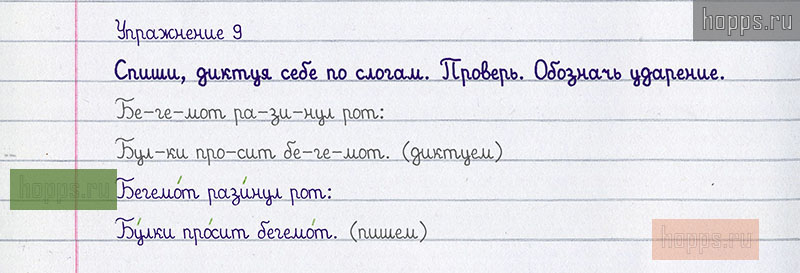 hopps.ru
Упражнение 9
Спиши, диктуя себе по слогам. Проверь. Обозначь ударение.
Бе-ге-мот ра-зи-нул рот:
Бул-ки про-сит бе-ге-мот. (диктуем)
hopps.ru
Бегемо́т рази́нул рот:
Бу́лки про́сит бегемо́т. (пишем)
hopps.ru